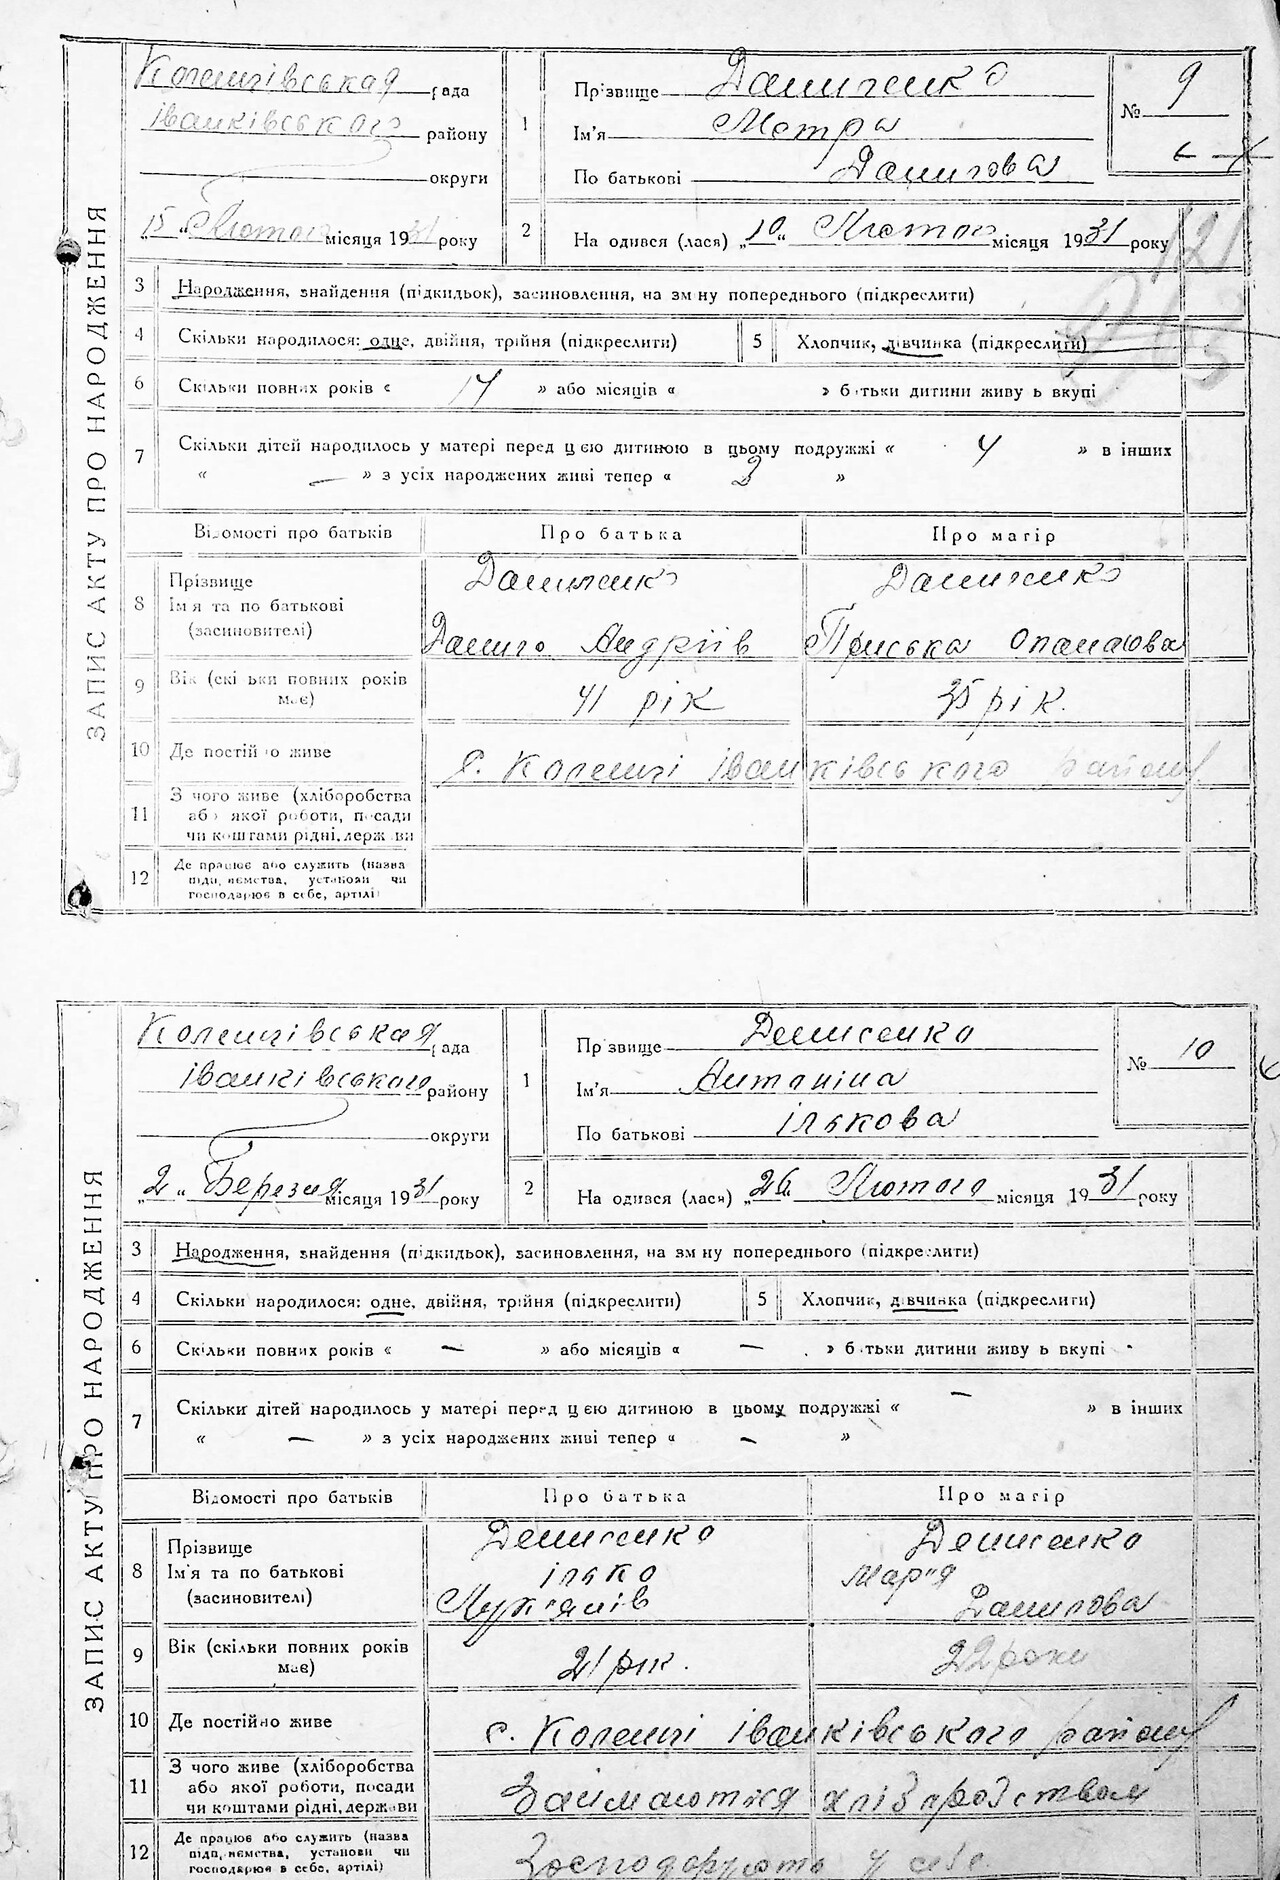 ЗАПИС АКТУ ПРО НАРОДЖЕННЯ
Коленцівська рада
Іванківського району
округи
„15“ Лютого місяця 1931 року
1
Прізвище Данченко
Ім'я Мотря
По батькові Данилова
№ 9
2
На одився (лася) „10“ Лютого місяця 1931 року
121
3 Народження, знайдення (підкидьок), засиновлення, на зм ну попереднього (підкреслити)
4 Скільки народилося: одне, двійня, трійня (підкреслити)
5 Хлопчик, дівчинка (підкреслити)
6 Скільки повних років « 14 » або місяців « » батьки дитини живу ь вкупі
7 Скільки дітей народилось у матері перед цією дитиною в цьому подружжі « 4 » в інших
« — » з усіх народжених живі тепер « 2 »
Відомості про батьків Про батька Про матір
8 Прізвище
Ім'я та по батькові
(засиновителі)
Данило Андріїв Приська Опанасова
9 Вік (скільки повних років
має)
41 рік 35 рік.
10 Де постійно живе с. Коленці Іванківського району
11 З чого живе (хліборобства
або якої роботи, посади
чи коштами рідні, держави
12 Де працює або служить (назва
підприємства, установи чи
господарює в себе, артілі)
ЗАПИС АКТУ ПРО НАРОДЖЕННЯ
Коленцівська рада
Іванківського району
округи
„2“ Березня місяця 1931 року
1
Прізвище Денисенко
Ім'я Антаніна
По батьковіІлькова
№ 10
2
На одився (лася) „26“ Лютого місяця 1931 року
3 Народження, знайдення (підкидьок), засиновлення, на зм ну попереднього (підкреслити)
4 Скільки народилося: одне, двійня, трійня (підкреслити)
5 Хлопчик, дівчинка (підкреслити)
6 Скільки повних років « — » або місяців « — » батьки дитини живу ь вкупі
7 Скільки дітей народилось у матері перед цією дитиною в цьому подружжі « — » в інших
« — » з усіх народжених живі тепер « — »
Відомості про батьків Про батька Про матір
8 Прізвище Денисенко Денисенко
Ім'я та по батькові Ілько Мар'я
(засиновителі) Лук'янів Данилова
9 Вік (скільки повних років
має)
21 рік. 22 роки
10 Де постійно живе с. Коленці Іванківського району
11 З чого живе (хліборобства
або якої роботи, посади
чи коштами рідні, держави
Займаються хліборобством
12 Де працює або служить (назва
підприємства, установи чи
господарює в себе, артілі)
Господарують у себе.